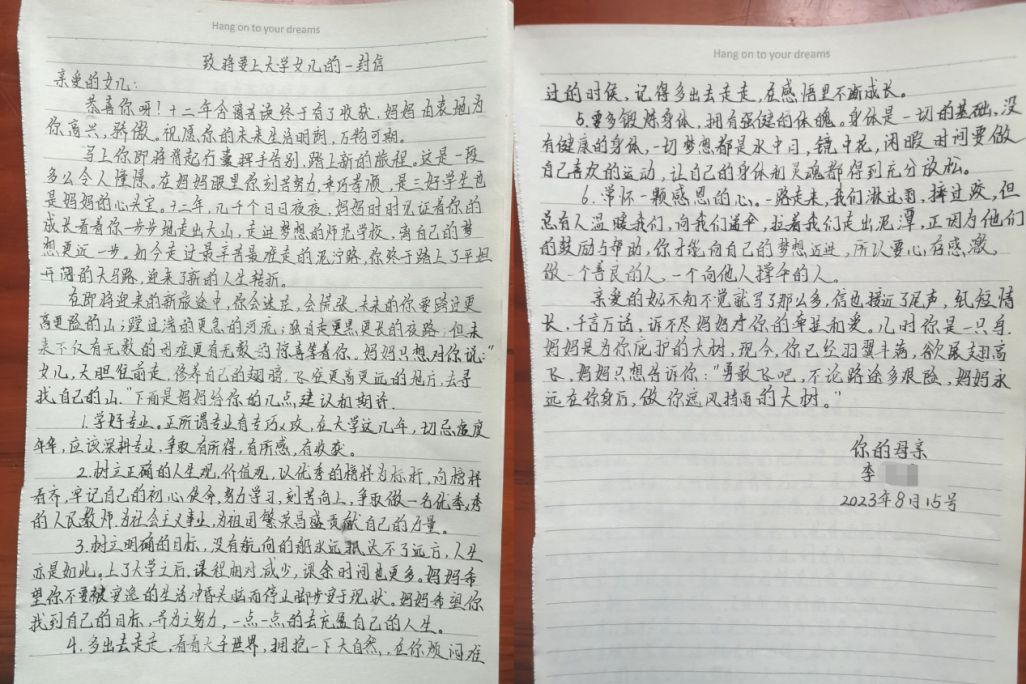 Hang on to your dreams
致将要上大学女儿的一封信
亲爱的女儿:
恭喜你呀!十二年含辛苦读终于有了收获,妈妈由衷地为
你高兴,骄傲。祝愿你的未来生活明朗,万物可期。
马上你即将背起行囊挥手告别,踏上新的旅程。这是一段
多么令人憧憬。在妈妈眼里你刻苦努力,乖巧孝顺,是三好学生也
是妈妈的心头宝。十二年,几千个日日夜夜,妈妈时时见证着你的
成长看着你一步步地走出大山,走进梦想的师范学校,离自己的梦
想更近一步。如今走过最辛苦最难走的泥泞路,你终于踏上了平坦
开阔的大马路,迎来了新的人生转折。
在即将迎来的新旅途中,你会迷茫,会慌张,未来的你要路过更
高更险的山;蹚过湍的更急的河流;独自走更黑更长的夜路,但未
来不仅有无数的困难更有无数的惊喜等着你。妈妈只想对你说:“
女儿,大胆往前走,修养自己的翅膀,飞往更高更远的地方,去寻
找自己的山。”下面是妈妈给你的几点建议和期许.
1.学好专业。正所谓专业有专巧x攻,在大学这几年,切忌虚度
年华,应该深耕专业,争取有所得,有所感,有收获。
2.树立正确的人生观,价值观,以优秀的榜样为标杆,向榜样
看齐,牢记自己的初心使命,努力学习,刻苦向上,争取做一名优秀
的人民教师,为社会主义事业,为祖国繁荣昌盛贡献自己的力量。
3.树立明确的目标,没有航向的船永远抵达不了远方,人生
亦是如此。上了大学之后,课程相对减少,课余时间也更多。妈妈希
望你不要被安逸的生活冲昏头脑而停止脚步安于现状。妈妈希望你
找到自己的目标,并为之努力,一点一点的去充盈自己的人生。
4.多出去走走,看看大千世界,拥抱一下大自然,在你烦闷难
Hang on to your dreams
过的时候,记得多出去走走,在感悟里不断成长。
5.要多锻炼身体,拥有强健的体魄。身体是一切的基础,没
有健康的身体,一切梦想都是水中月,镜中花,闲暇时间要做
自己喜欢的运动,让自己的身体和灵魂都得到充分放松。
6.常怀一颗感恩的心。一路走来,我们淋过雨,摔过跤,但
总有人温暖我们,向我们递伞,拉着我们走出泥潭,正因为他们
的鼓励与帮助,你才能向自己的梦想迈进,所以要心存感激,
做一个善良的人,一个向他人撑伞的人。
亲爱的女儿不知不觉就写了那么多,信也接近了尾声,纸短情
长,千言万语,诉不尽妈妈对你的牵挂和爱。儿时你是一只鸟,
妈妈是为你庇护的大树,现今,你已经羽翼丰满,欲展翅高
飞,妈妈只想告诉你:“勇敢飞吧,不论路途多艰险,妈妈永
远在你身后,做你遮风挡雨的大树。”
你的母亲
李
2023年8月15号